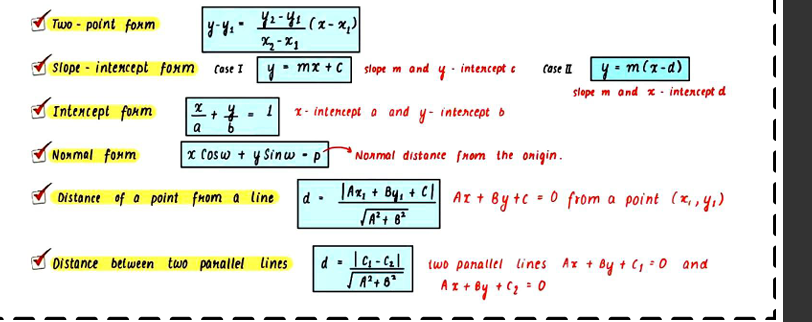 Two-point form y-y₁ = (y₂-y₁)/(x₂-x₁) (x-x₁)
Slope-intercept form Case I y = mx + c slope m and y-intercept c Case II y = m(x-d)
slope m and x-intercept d
Intercept form x/a + y/b = 1 x-intercept a and y-intercept b
Normal form x Cosω + y Sinω = p Normal distance from the origin.
Distance of a point from a line d = |Ax₁ + By₁ + C|/√(A² + B²) Ax + By + C = 0 from a point (x₁, y₁)
Distance between two parallel lines d = |C₁ - C₂|/√(A² + B²) two parallel lines Ax + By + C₁ = 0 and
Ax + By + C₂ = 0